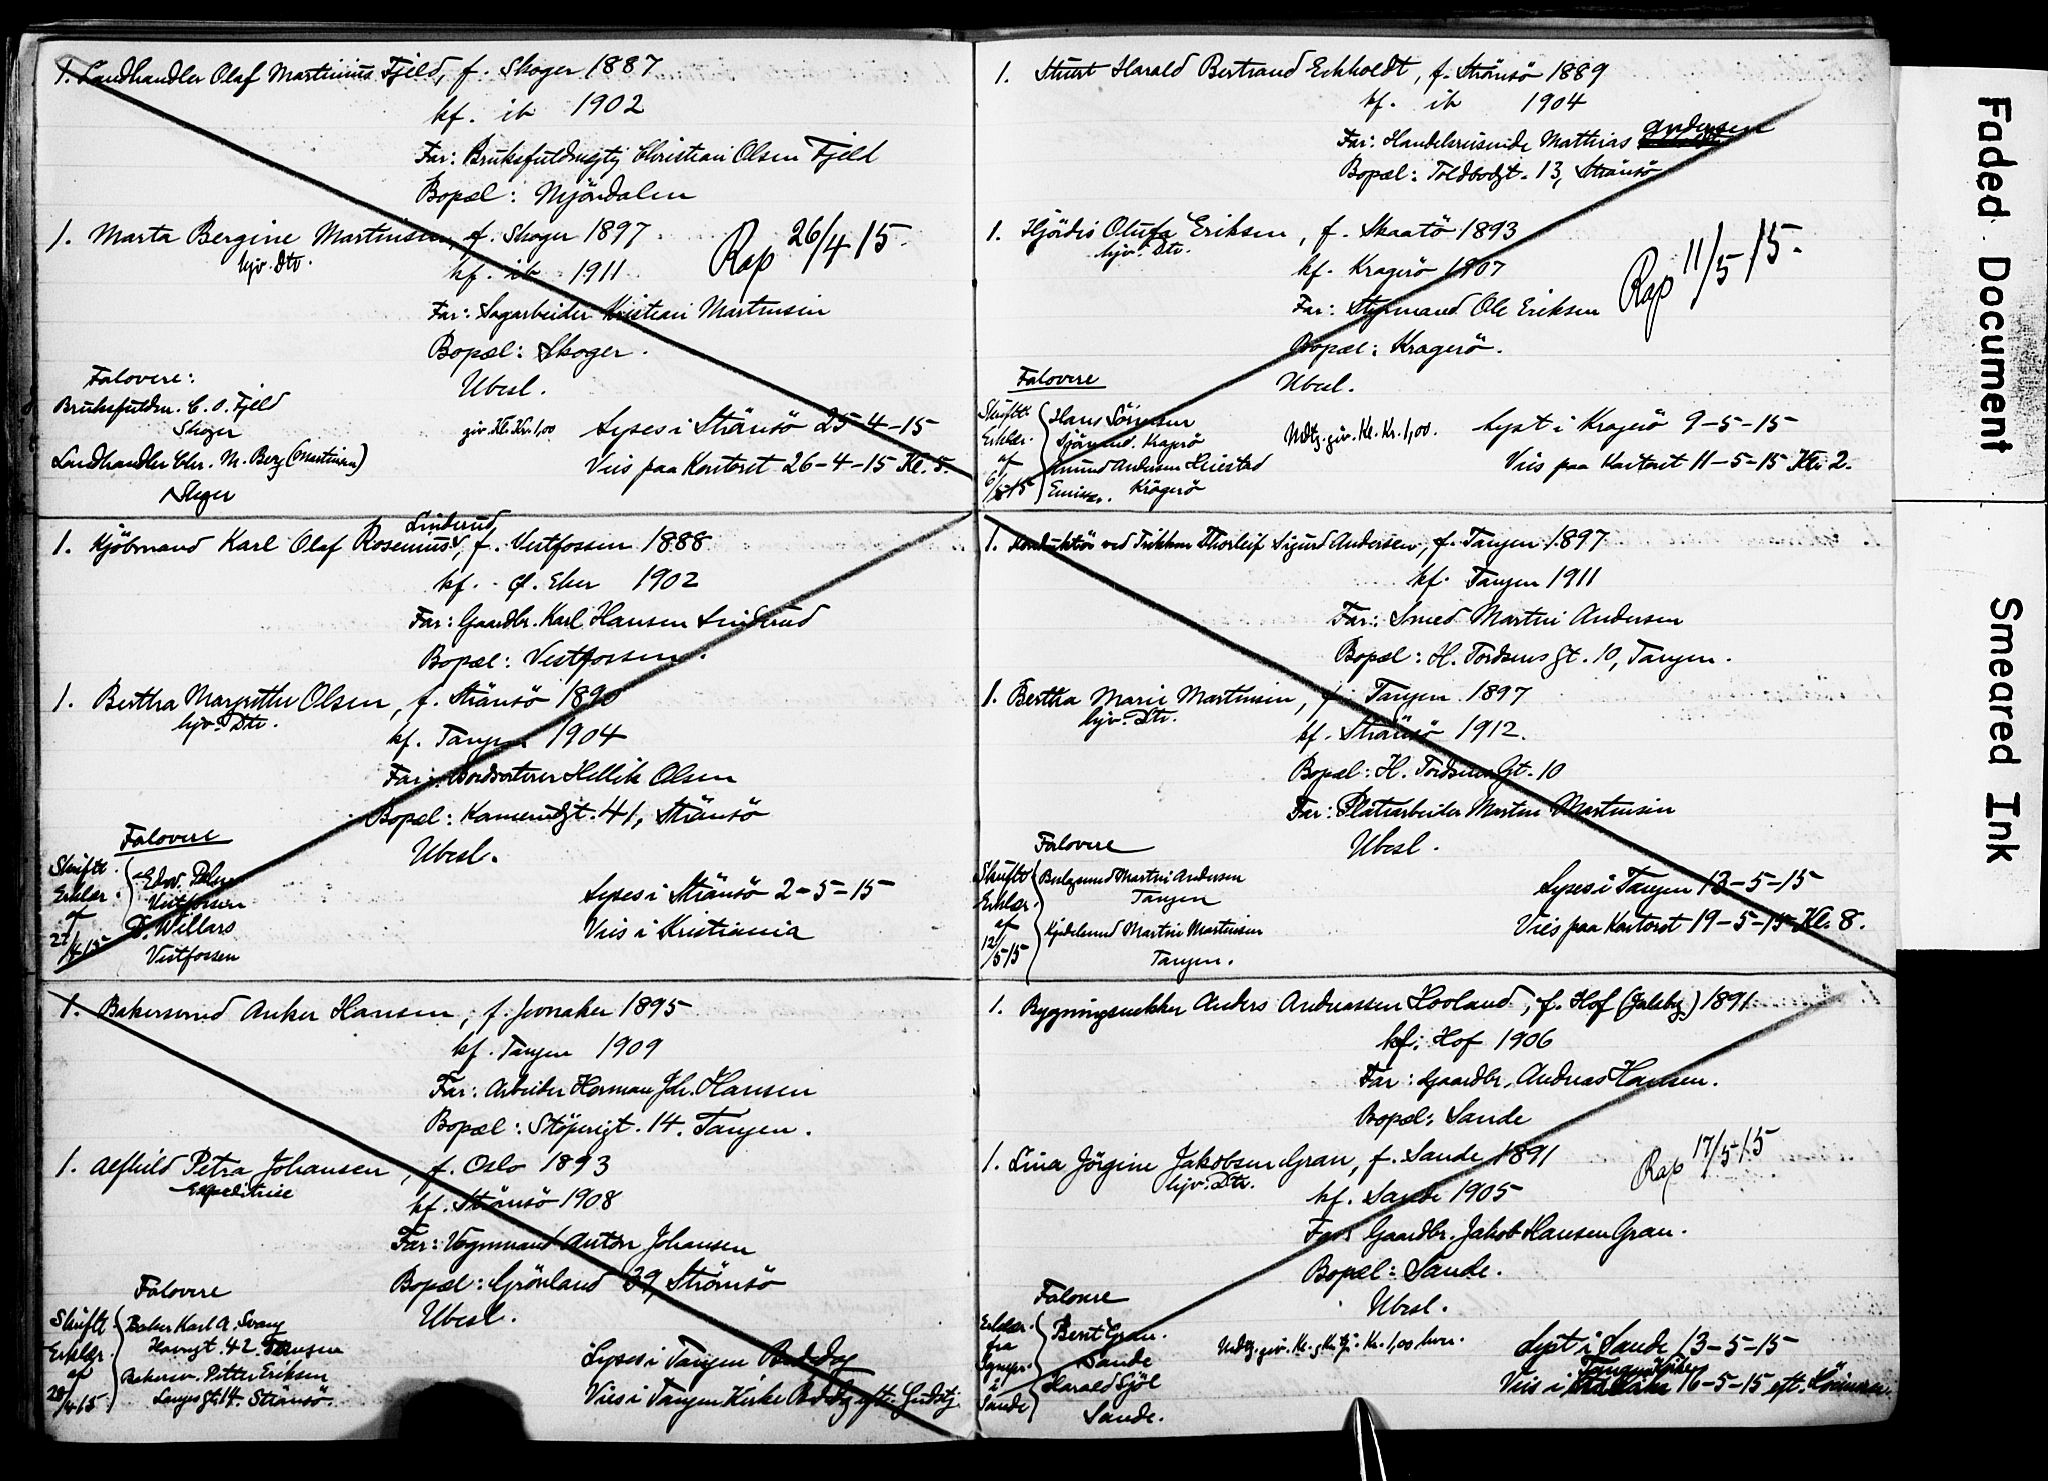 1. Landhandler Olaf Martinius Fjeld, f. Skoger 1887
kf. ib 1902
Far: Bruksfuldmegtig Christian Olsen Fjeld
Bopæl: Mjöndalen
1. Marta Bergine Martinsen, f. Skoger 1897
hjv. Dtr.
kf. ib 1911
Rap 26/4 15.
Far: Sagarbeider Kristian Martinsen
Bopæl: Skoger.
Ubesl.
Falovere:
Bruksfuldm. C. O. Fjeld
Skoger
Landhandler Chr. M. Berg (Martinsen)
Skoger
giv. Kl. Kr. 1,00
Lyses i Strömsö 25-4-15
Vies paa Kontoret 26-4-15 Kl. 5.
1. Kjöbmand Karl Olaf Rosenius Linderud, f. Vestfossen 1888
kf. Ø. Eker 1902
Far: Gaardbr. Karl Hansen Linderud
Bopæl: Vestfossen.
1. Bertha Margrethe Olsen, f. Strömsö 1890
hjv. Dtr.
kf. Tangen 1904
Far: Bordsorterer Hellik Olsen
Bopæl: 41, Strömsö
Ubesl.
Falovere
Skriftl. Erklær. af 22/4 15
Edw.
Vestfossen
D. Willars
Vestfossen
Lyses i Strömsö 2-5-15
Vies i Kristiania
1. Bakersvend Anker Hansen, f. Jevnaker 1895
kf. Tangen 1909
Far: Arbeider Herman Joh. Hansen
Bopæl: Stöperigt. 14. Tangen.
1. Alfhild Petra Johansen, f. Oslo 1893
Expeditrise
kf. Strömsö 1908
Far: Vognmand Anton Johansen
Bopæl: Grönland 39, Strömsö
Ubesl.
Falovere
Skriftl. Erklær. af 28/4 15
Baker Karl A. Svang
Havnegt. 42. Tangen
Bakersv. Petter Eriksen
Langes gt. 14. Strömsö.
Lyses i Tangen Bededag
Vies i Tangen Kirke B.d.dg eft. Gudstj.
1. Harald Bertrand Eckholdt, f. Strömsö 1889
kf. ib 1904
Far: Handelsreisende Mathias Andersen
Bopæl: Toldbodgt. 13, Strömsö
1. Hjördis Olufa Eriksen, f. Skaatö 1893
hjv. Dtr.
kf. Kragerö 1907
Rap 11/5 15.
Far: Styrmand Ole Eriksen
Bopæl: Kragerö.
Ubesl.
Falovere
Skriftl. Erklær. af 6/5 15
Hans Sörensen
Sjömand. Kragerö
Kragerö
Mdtg. giv. Kl. Kr. 1,00.
Lyst i Kragerö 9-5-15
Vies paa Kontoret 11-5-15 Kl. 2.
1. Konduktör ved Trikken Thorleif Sigurd Andersen, f. Tangen 1897
kf. Tangen 1911
Far: Smed Martin Andersen
Bopæl: H. Tordsens gt. 10, Tangen.
1. Bertha Marie Martinsen, f. Tangen 1897
hjv. Dtr.
kf. Strömsö 1912.
Bopæl: H. Tordsens Gt. 10
Far: Platearbeider Martin Martinsen
Ubesl.
Falovere
Skriftl. Erklær. af 12/5 15
Beslagsmed Martin Andersen
Tangen
Kjedelsmed Martin Martinsen
Tangen.
Lyses i Tangen 13-5-15
Vies paa Kontoret 19-5-15 Kl. 8.
1. Bygningssnekker Anders Andreassen Hovland, f. Hof (Jarlsbg.) 1891
kf. Hof 1906
Far: Gaardbr. Andreas Hansen.
Bopæl: Sande
1. Lina Jörgine Jakobsen Gran, f. Sande 1891
hjv. Dtr.
Rap 17/5 15
kf. Sande 1905
Far: Gaardbr. Jakob Hansen Gran.
Bopæl: Sande.
Ubesl.
Falovere
Erklær. fra Sognepr. i Sande
Berit Gran.
Sande
Harald Sjöl
Sande.
Mdtg. giv. Kl. Kr. 1,00 hver.
Lyst i Sande 13-5-15
Vies i Tangen Kirke 16-5-15 eft. Höimesse.
Faded Document
Smeared Ink